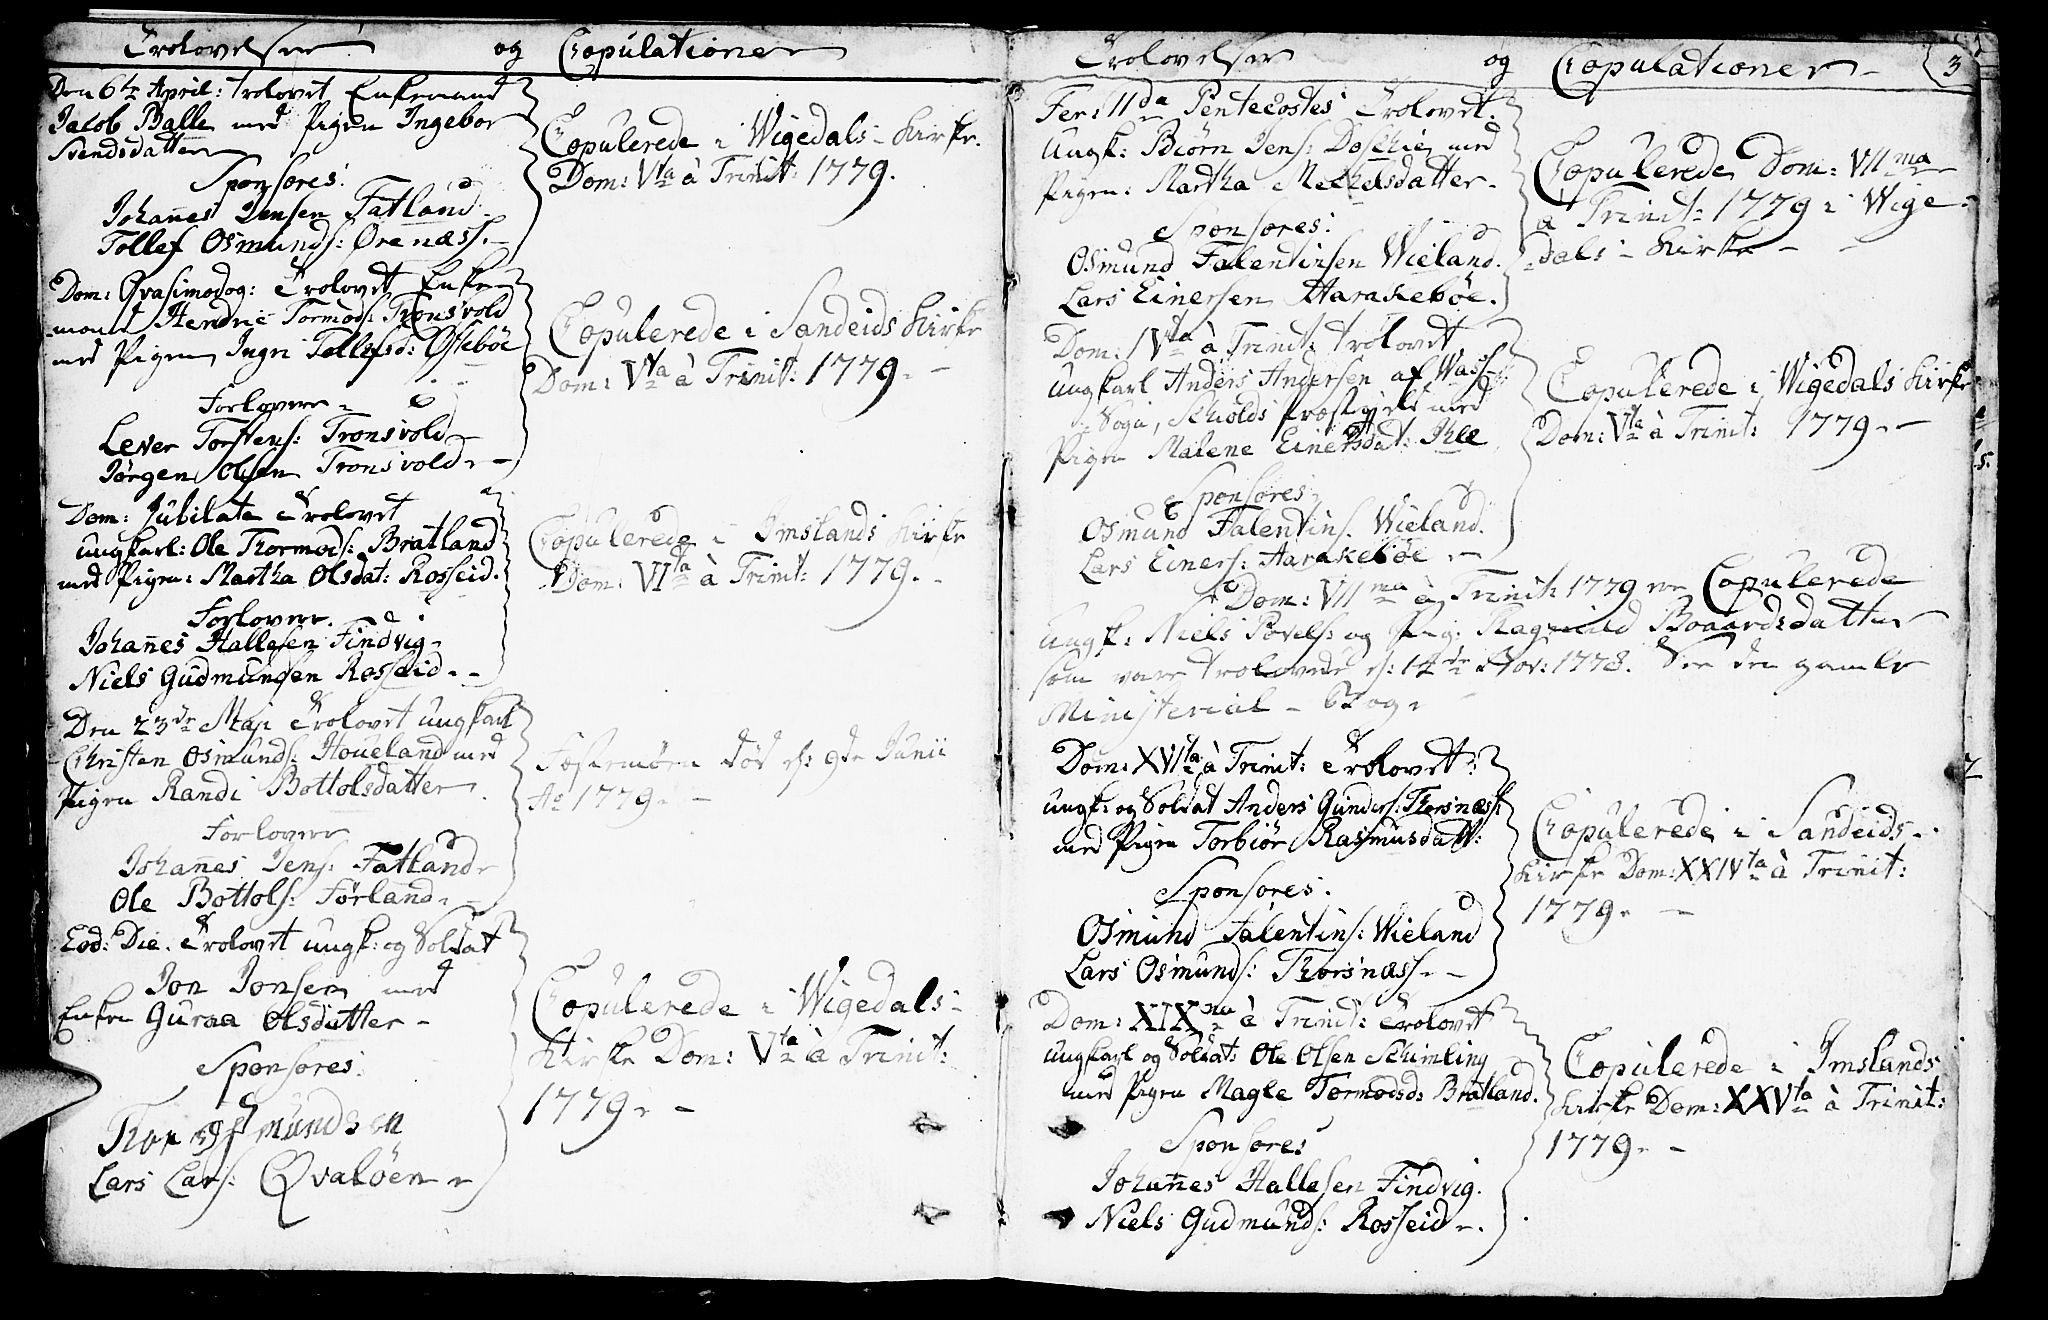 Trolovelser og Copulationer
Den 6te April: trolovet Enkemand
Jacob Balle med Pigen Ingebor
Svendsdatter
Sponsores:
Johan̄es Jensen Fatland
Tollef Osmunds: Ørenæss.
Copulerede i Wigedals Kirke.
Dom: Vta à Trinit: 1779.
Dom: Qvasimodog: Trolovet Enke-
mand Hendric Tormods: Tronsvold
med Pigen Ingri Tollefsd: Østebøe
Forlovere
Lever Torstens: Tronsvold
Jørgen Olsen Tronsvold
Copulerede i Sandeids Kirke
Dom: Vta à Trinit: 1779.
Dom: Jubilate Trolovet
Ungkarl: Ole Thormods: Bratland
med Pigen: Martha Olsdat: Rosseid.
Forlovere
Johan̄es Hallesen Findvig
Niels Gudmunsen Rosseid
Copulerede i Imslands Kirke
Dom: VIta à Trinit: 1779.
Den 23de Maji Trolovet Ungkarl
Christen Osmunds: Houeland med
Pigen Randi Bottolsdatter
Forlovere
Johan̄es Jens: Fatland
Ole Bottols: Førland
Festemøen död d: 9de Junii
Ao 1779.
Eod: Die. Trolovet Ungk: og Soldat
Jon Jonsen med
Enken Guraa Olsdatter
Sponsores:
Thor Osmundsen
Lars Lars: Qvaløen
Copulerede i Wigedals
Kirke Dom: Vta à Trinit:
1779.
Trolovelser og Copulationer
3
Fer: IIda Pentecostes Trolovet
Ungk: Biørn Jens: Doskie med
Pigen: Martha Mechelsdatter
Sponsores:
Osmund Falentinsen Wieland.
Lars Einersen Aarakebøe.
Copulerede Dom: VIIma
à Trinit: 1779 i Wige-
dals Kirke
Dom: IVta à Trinit: trolovet
Ungkarl Anders Andersen af Wass-
Sogn, Schiolds Præstegield med
Pigen Malene Einersdat: Ihle
Sponsores
Osmund Falentins. Wieland.
Lars Einers: Aarakebøe
Copulerede i Wigedals Kirke
Dom: Vta à Trinit: 1779.
Dom: VIIma à Trinit: 1779 ere Copulerede
Ungk: Niels Povels: og Pig: Ragnild Boaardsdatter
som vare trolovede d: 14de Nov: 1778. See den gamle
Ministerial-Bog.
Dom: XVIta à Trinit: Trolovet
Ungk: og Soldat Anders Gunders: Thorsnæss
med Pigen Torbiør Rasmusdatt:
Sponsores.
Osmund Falentins: Wieland
Lars Osmunds: Thorsnæss
Copulerede i Sandeids
Kirke Dom: XXIVta à Trinit:
1779.
Dom: XIXna à Trinit: Trolovet
Ungkarl og Soldat: Ole Olsen Schimling
med Pigen Magle Tormodsd: Bratland.
Sponsores
Johan̄es Hallesen Findvig.
Niels Gudmunds: Rosseid
Copulerede i Imslands
Kirke Dom: XXVta à Trinit:
1779.